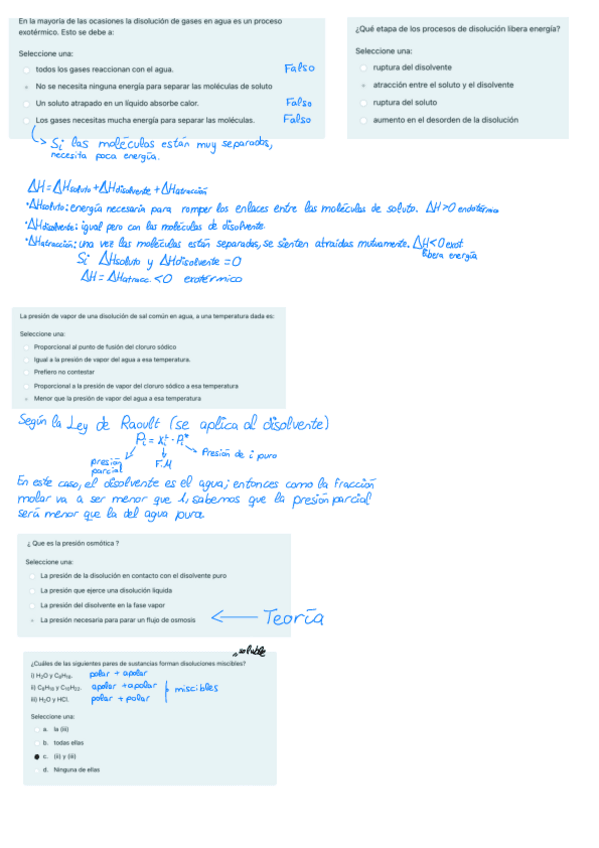 En la mayoría de las ocasiones la disolución de gases en agua es un proceso
exotérmico. Esto se debe a:
Seleccione una:
todos los gases reaccionan con el agua. Falso
No se necesita ninguna energía para separar las moléculas de soluto
Un soluto atrapado en un líquido absorbe calor. Falso
Los gases necesitas mucha energía para separar las moléculas. Falso
Si las moléculas están muy separadas,
necesita poca energía.
¿Qué etapa de los procesos de disolución libera energía?
Seleccione una:
ruptura del disolvente
atracción entre el soluto y el disolvente
ruptura del soluto
aumento en el desorden de la disolución
ΔH = ΔHsoluto + ΔHdisolvente + ΔHatracción
·ΔHsoluto: energía necesaria para romper los enlaces entre las moléculas de soluto. ΔH>0 endotérmico
·ΔHdisolvente: igual pero con las moléculas de disolvente.
·ΔHatracción: una vez las moléculas están separadas, se sienten atraídas mutuamente. ΔH<0 exot.
libera energía
Si ΔHsoluto y ΔHdisolvente = 0
ΔH = ΔHatracc. < 0 exotérmico
La presión de vapor de una disolución de sal común en agua, a una temperatura dada es:
Seleccione una:
Proporcional al punto de fusión del cloruro sódico
Igual a la presión de vapor del agua a esa temperatura.
Prefiero no contestar
Proporcional a la presión de vapor del cloruro sódico a esa temperatura
Menor que la presión de vapor del agua a esa temperatura
Según la Ley de Raoult (se aplica al disolvente)
Pi = xiL · Pi*
presión parcial F.M Presión de i puro
En este caso, el disolvente es el agua; entonces como la fracción
molar va a ser menor que 1, sabemos que la presión parcial
será menor que la del agua pura.
¿ Que es la presión osmótica ?
Seleccione una:
La presión de la disolución en contacto con el disolvente puro
La presión que ejerce una disolución liquida
La presión del disolvente en la fase vapor
La presión necesaria para parar un flujo de osmosis ← Teoría
soluble
¿Cuáles de las siguientes pares de sustancias forman disoluciones miscibles?
i) H₂O y C₈H₁₈. polar + apolar
ii) C₈H₁₈ y C₁₀H₂₂. apolar + apolar
iii) H₂O y HCl. polar + polar
miscibles
Seleccione una:
a. la (iii)
b. todas ellas
c. (ii) y (iii)
d. Ninguna de ellas